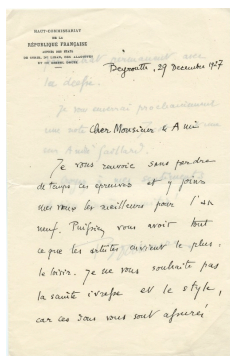 HAUT-COMMISSARIAT
DE LA
RÉPUBLIQUE FRANÇAISE
AUPRÈS DES ÉTATS
DE SYRIE, DU LIBAN, DES ALAOUITES
ET DU DJEBEL DRUZE
Beyrouth, 29 Décembre 1927
Cher Monsieur & Ami
Je vous renvoie sans perdre
de temps ces épreuves et y joins
mes vœux les meilleurs pour l'an
neuf. Puissiez vous avoir tout
ce que les artistes envient le plus,
le loisir. Je ne vous souhaite pas
la santé et le style,
car ces dons vous sont assurés